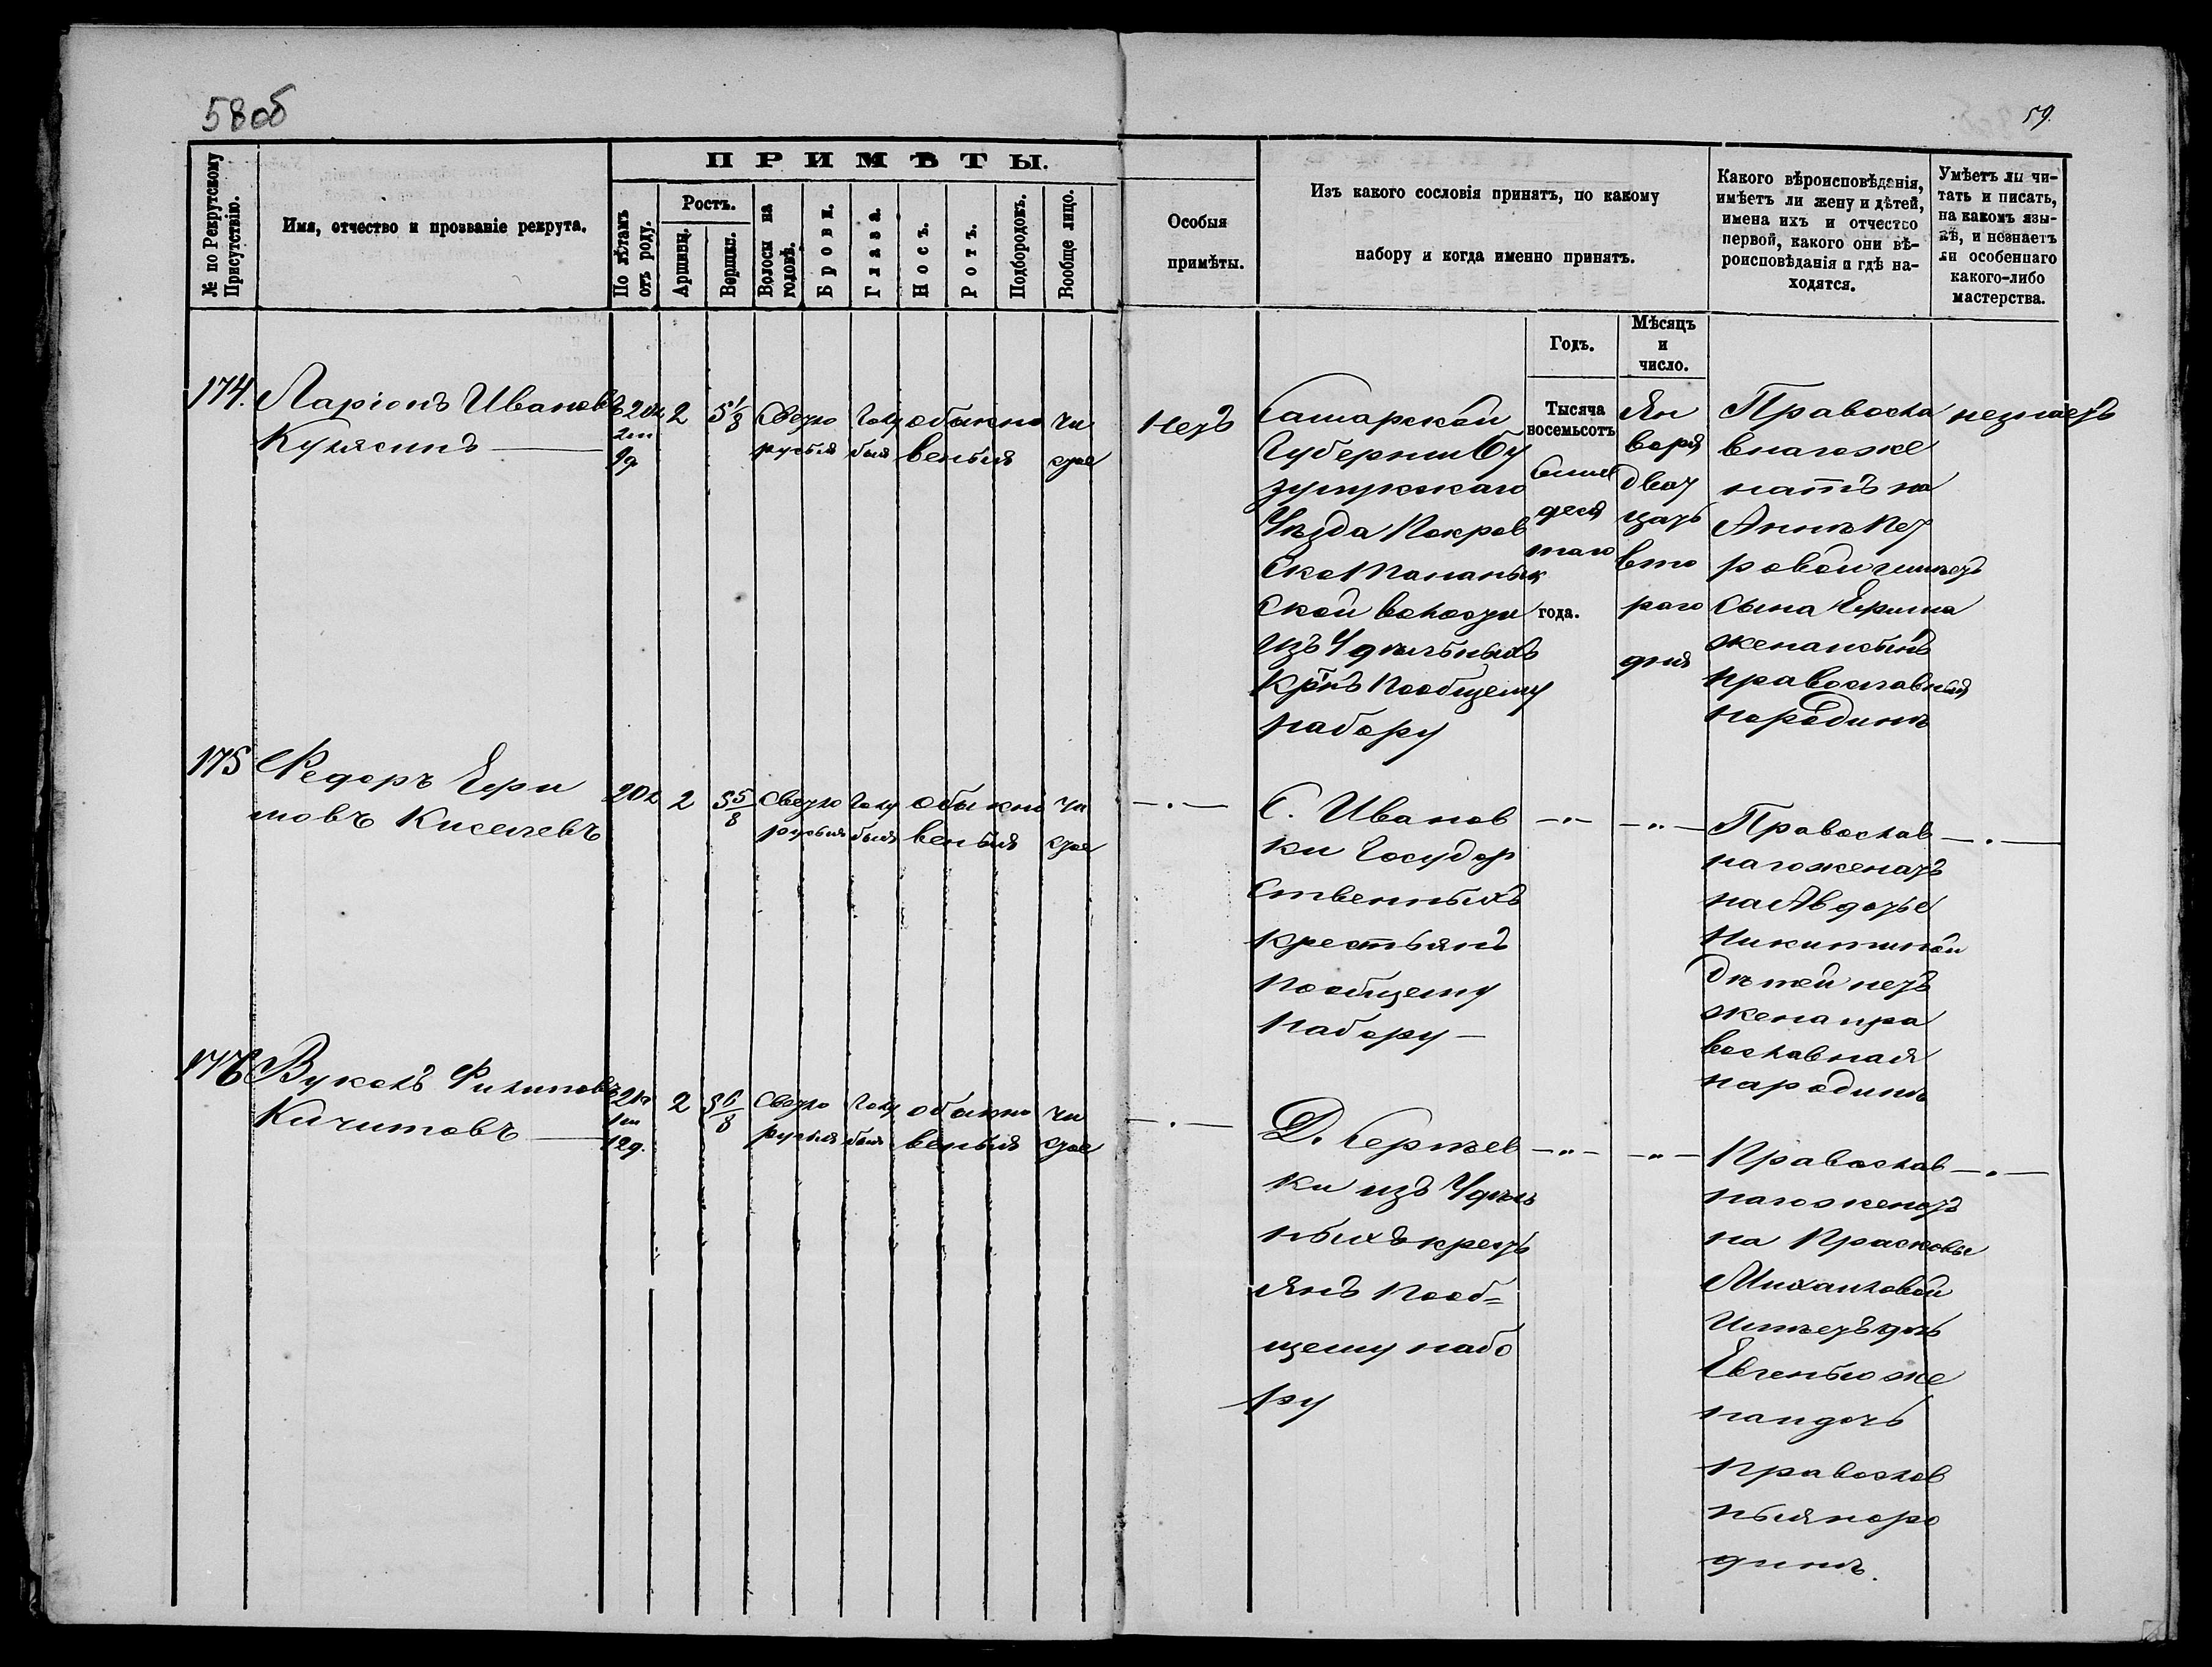 58об
59.
№ по Рекрутскому Присутствію.
Имя, отчество и прозваніе рекрута.
ПРИМѢТЫ.
По лѣтамъ отъ роду.
Ростъ.
Аршины.
Вершки.
Волосы на головѣ.
Брови.
Глаза.
Носъ.
Ротъ.
Подбородокъ.
Вообще лицо.
Особыя
примѣты.
Изъ какого сословія принятъ, по какому
набору и когда именно принятъ.
Годъ.
Мѣсяцъ
и
число.
Какого вѣроисповѣданія,
имѣетъ ли жену и дѣтей,
имена ихъ и отчество
первой, какого они вѣ-
роисповѣданія и гдѣ на-
ходятся.
Умѣетъ ли чи-
тать и писать,
на какомъ язы-
кѣ, и незнаетъ
ли особеннаго
какого-либо
мастерства.
174.
Ларіонъ Ивановъ
Кулясинъ
20л
2м
9д
2
5 1/8
Светло
русыя
голу
быя
обыкно
веныя
чи
стое
нетъ
Самарской
Губернии Бу
зулукскаго
Уѣзда Покров
ской волости
изъ Удѣльныхъ
Кр̃нъ пообщему
набору
Тысяча
восемьсотъ
десятаго
года.
Ян
варя
двад
цать
вто
раго
дня
Правосла
внагоже
натъ на
Аннѣ Пет
ровой имѣетъ
сына Ефима
жена исынъ
православныя
народинѣ
незнаетъ
175
Федоръ Ефи
мовъ Киселевъ
20л
2
5 5/8
Светло
русыя
голу
быя
обыкно
веныя
чи
стое
С. Иванов
ки Государ
ственныхъ
крестьянъ
пообщему
набору
Православ
нагоженатъ
на Авдотье
Никитиной
дѣтей нетъ
жена пра
вославная
народинѣ
176
Вуколъ Филиповъ
Кичитовъ
21л
1м
12д.
2
5 6/8
Светло
русыя
голу
быя
обыкно
веныя
чи
стое
Д. Сергѣев
ки изъ Удѣль
ныхъ крест
янъ пооб=
щему набо
ру
Православ
нагоженатъ
на Прасковье
Михайловой
имѣетъ дочь
Евгенью же
на и дочь
православ
ныя наро
динѣ.